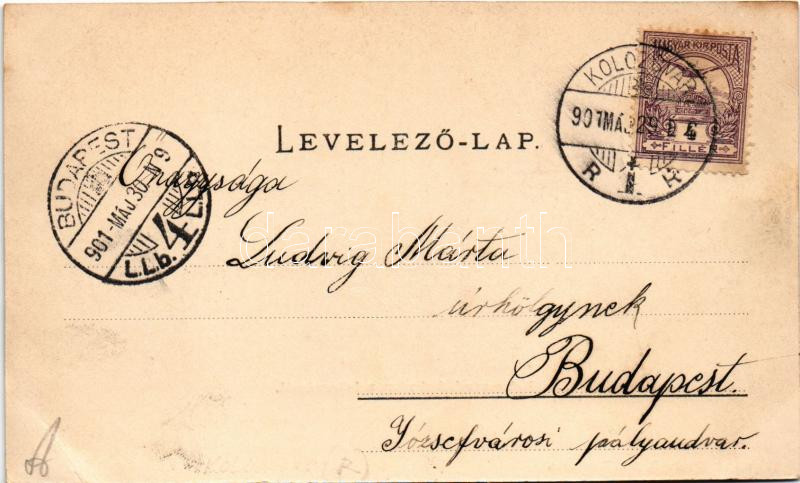 MAGYAR KIR. POSTA
KOLOZSVÁR
901 MÁJ 29
4
FILLÉR
LEVELEZŐ-LAP.
BUDAPEST
901-MÁJ.30
L.Lb. 4
Őnagysága
Ludvig Márta
úrhölgynek
Budapest.
Józsefvárosi pályaudvar.
darabanth